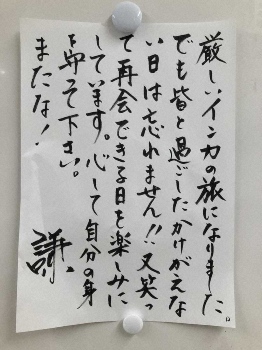 厳しいインカの旅になりました
でも皆と過ごしたかけがえな
い日は忘れません!!又笑っ
て再会できる日を楽しみに
しています。心して自分の身
を守って下さい。
またな!
謙